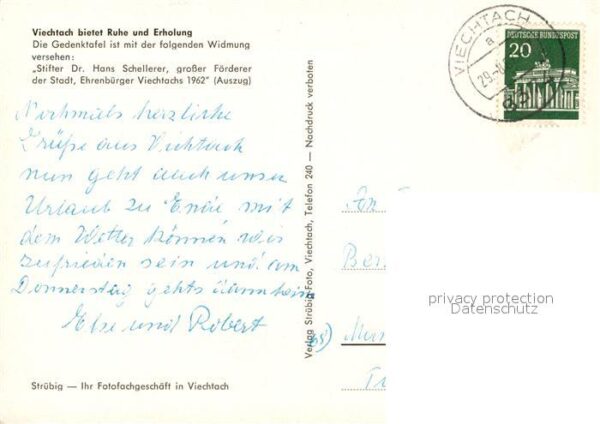 Viechtach bietet Ruhe und Erholung
Die Gedenktafel ist mit der folgenden Widmung
versehen:
„Stifter Dr. Hans Schellerer, großer Förderer
der Stadt, Ehrenbürger Viechtachs 1962" (Auszug)
Nochmals herzliche
Grüße aus Viechtach
nun geht auch unser
Urlaub zu Ende mit
dem Wetter können wir
zufrieden sein und am
Donnerstag gehts dann heim
Else und Robert
Strübig — Ihr Fotofachgeschäft in Viechtach
Verlag Strübig-Foto, Viechtach, Telefon 240 — Nachdruck verboten
VIECHTACH
a
29.
DEUTSCHE BUNDESPOST
20
An
privacy protection
Datenschutz